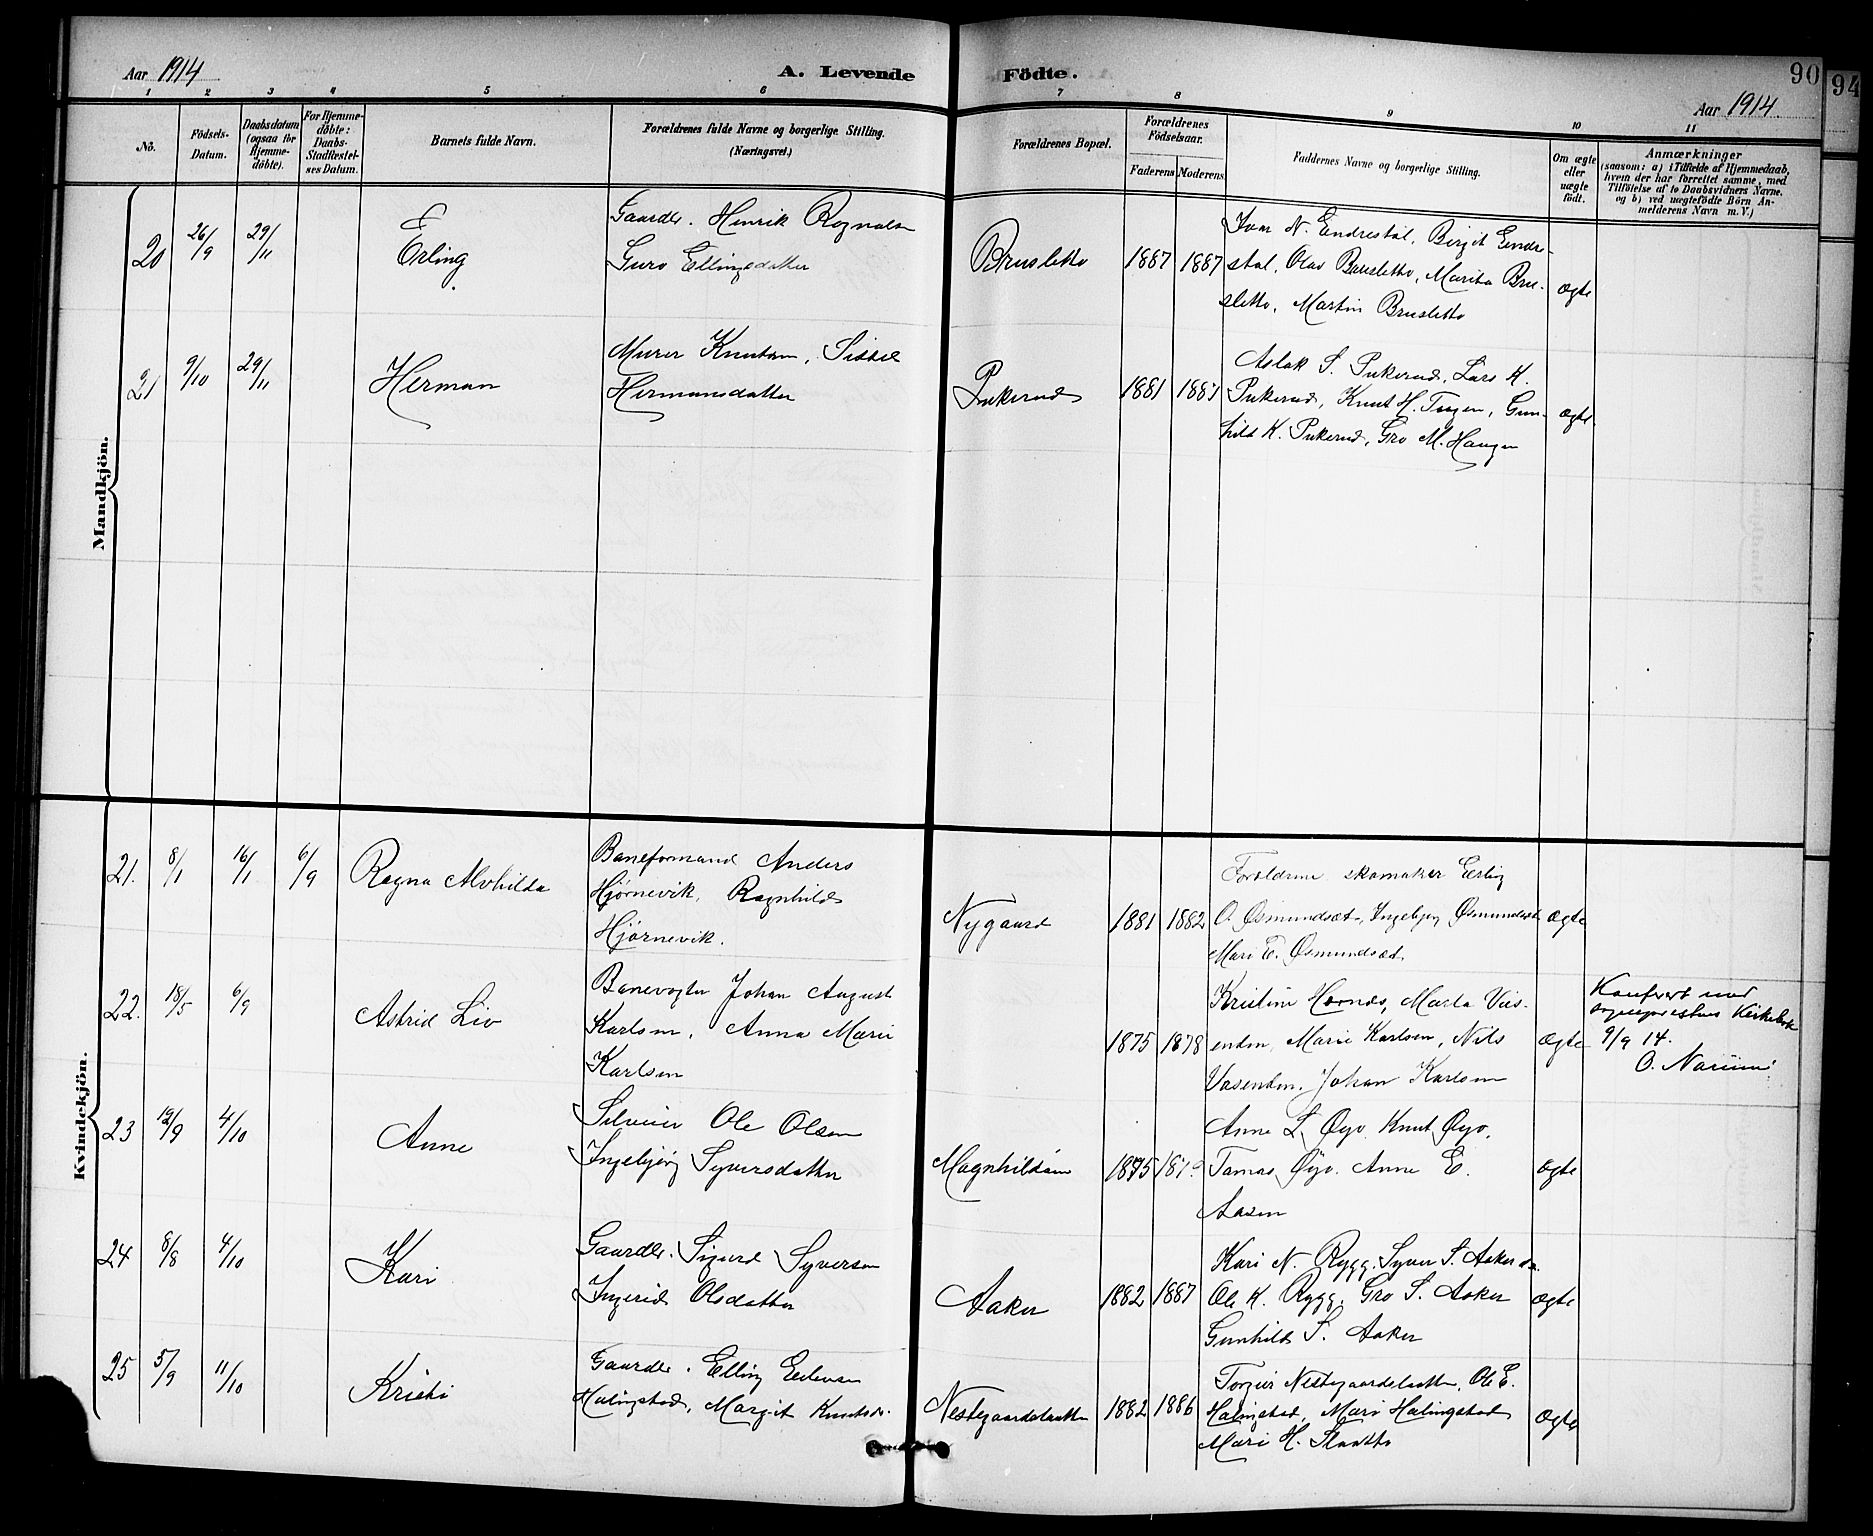 Aar 1914
A. Levende Födte.
90
94
Aar 1914
1 2 3 4 5 6 7 8 9 10 11
No.
Födsels-
Datum.
Daabsdatum
(ogsaa for
Hjemme-
döbte).
For Hjemme-
döbte:
Daabs-
Stadfæstel-
ses Datum.
Barnets fulde Navn.
Forældrenes fulde Navne og borgerlige Stilling.
(Næringsvei.)
Forældrenes Bopæl.
Forældrenes
Födselsaar.
Faderens Moderens
Faddernes Navne og borgerlige Stilling.
Om ægte
eller
uægte
födt.
Anmærkninger
(saasom: a) i Tilfælde af Hjemmedaab,
hvem der har forrettet samme, med
Tilföielse af to Daabsvidners Navne,
og b) ved uægtefödte Börn An-
melderens Navn m. V.)
Mandkjön.
20 26/9 29/11
Erling
Gaardbr. Henrik Rognalsen
Guro Ellingsdatter
Brusletto
1887 1887
Ivar N. Endrestøl, Birgit Endre-
støl, Olav Brusletto, Marita Bru-
sletto, Martin Brusletto
ægte
21 9/10 29/11
Herman
Murer Knutsen, Sissel
Hermansdatter
Pukerud
1881 1881
Aslak S. Pukerud, Lars K.
Pukerud, Knut H. Gun-
hild K. Pukerud, Gro M. Haugen
ægte
Kvindekjön.
21. 8/1 16/1 6/9
Ragna Alvhilda
Baneformand Anders
Hjørnevik, Ragnhild
Hjørnevik.
Nygaard
1881 1882
Forældrene, skomaker Erling
O. Øsmundset, Ingebjør Øsmundset
Mari E. Øsmundset
ægte
22. 18/5 6/9
Astrid Liv
Banevogter Johan August
Karlsen, Anna Marie
Karlsen
1875 1878
Kristine Marta Vas-
enden, Marie Karlsen, Nils
Vasenden, Johan Karlsen
ægte
Konfrert med
sogneprestens Kirkebok
9/9 14.
23 12/9 4/10
Anne
Selveier Ole Olsen
Ingebjørg Syversdatter
Magnhildøen
1875
Anne L. Øyo, Knut Øyo,
Tomas Øyo, Anne E.
Aasen
ægte
24 8/8 4/10
Kari
Gaardbr. Sigurd Syversen
Ingerid Olsdatter
Aaker
1882 1887
Kari N. Rygg, Syver S. Aaker
Ole K. Rygg, Gro S. Aaker
Gunhild S. Aaker
ægte
25 5/9 11/10
Kristi
Gaardbr. Elling
Halingstad, Margit Knutsdr.
Nestegaardslaatten
1882 1886
Torgeir Nestegaardslaatten, Ole E.
Halingstad, Mari Halingstad
Mari H. Slaatto
ægte